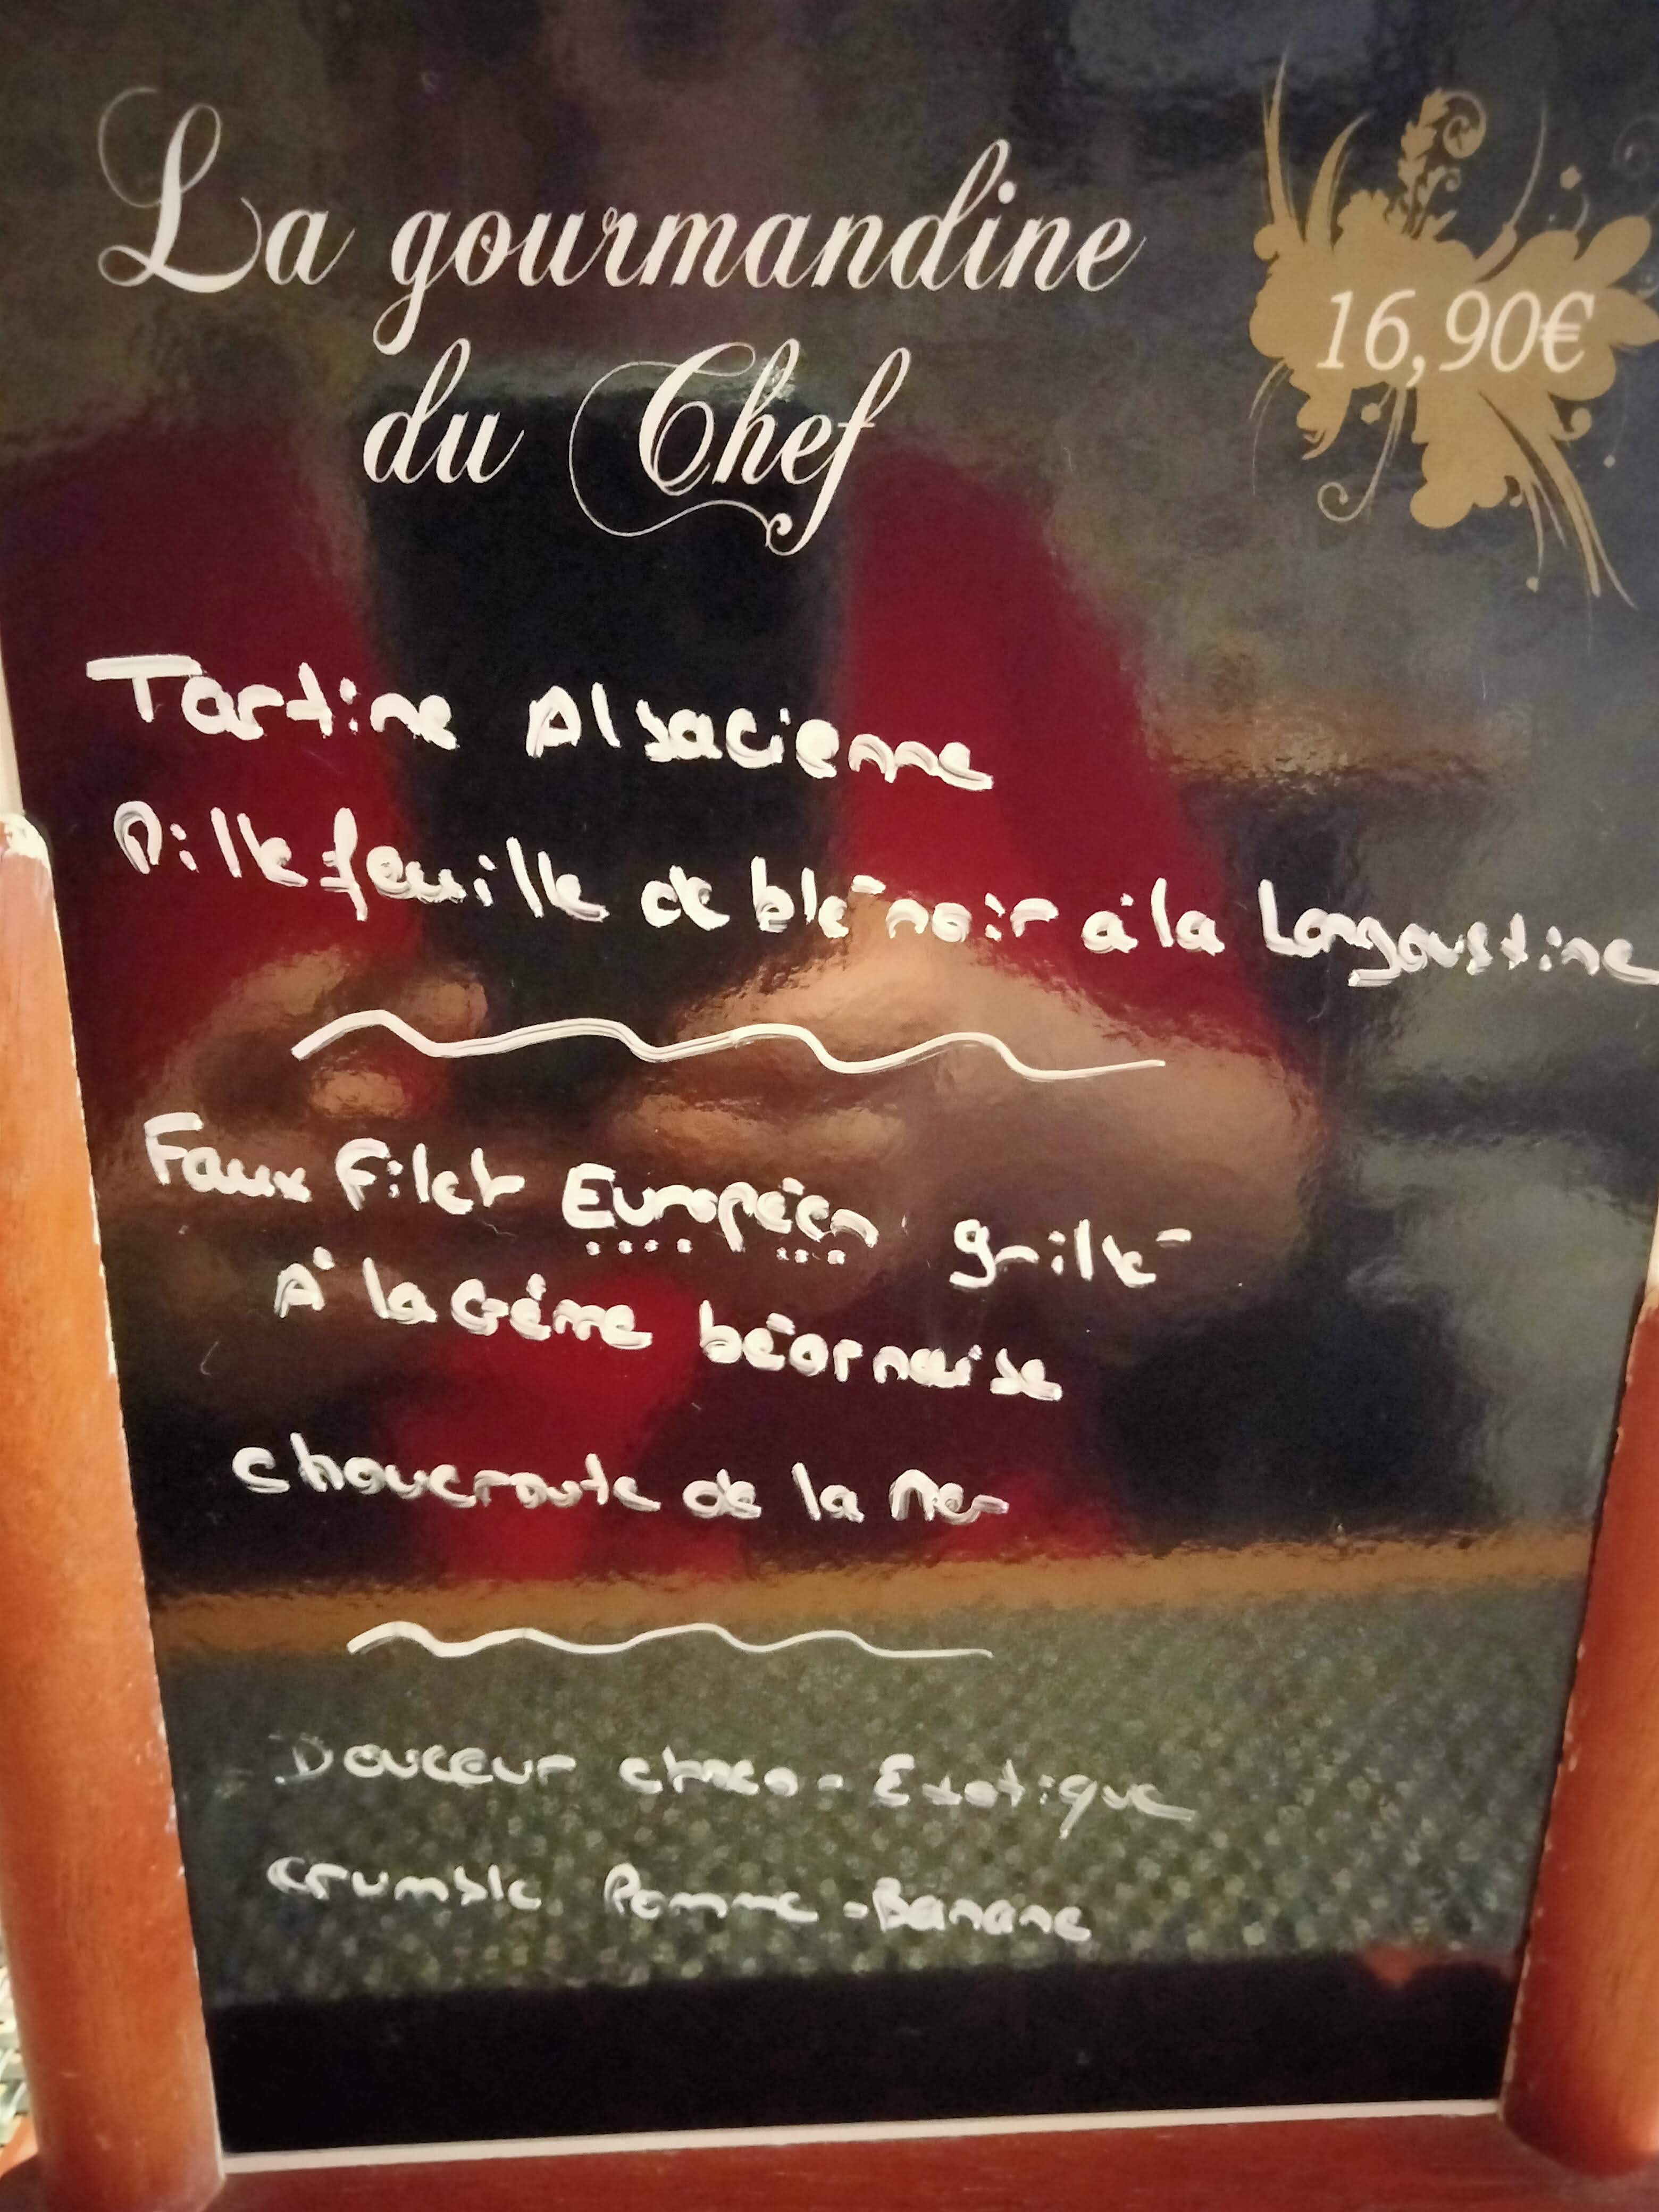 La gourmandine
du Chef
16,90€
Tartine Alsacienne
Millefeuille de blé noir à la Langoustine
Faux Filet Européen grillé
A la Crème béarnaise
choucroute de la Mer
Douceur choco - Exotique
crumble Pomme - Banane